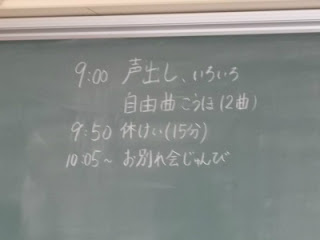 9:00 声出し、いろいろ
自由曲こうほ(2曲)
9:50 休けい(15分)
10:05~ お別れ会じゅんび